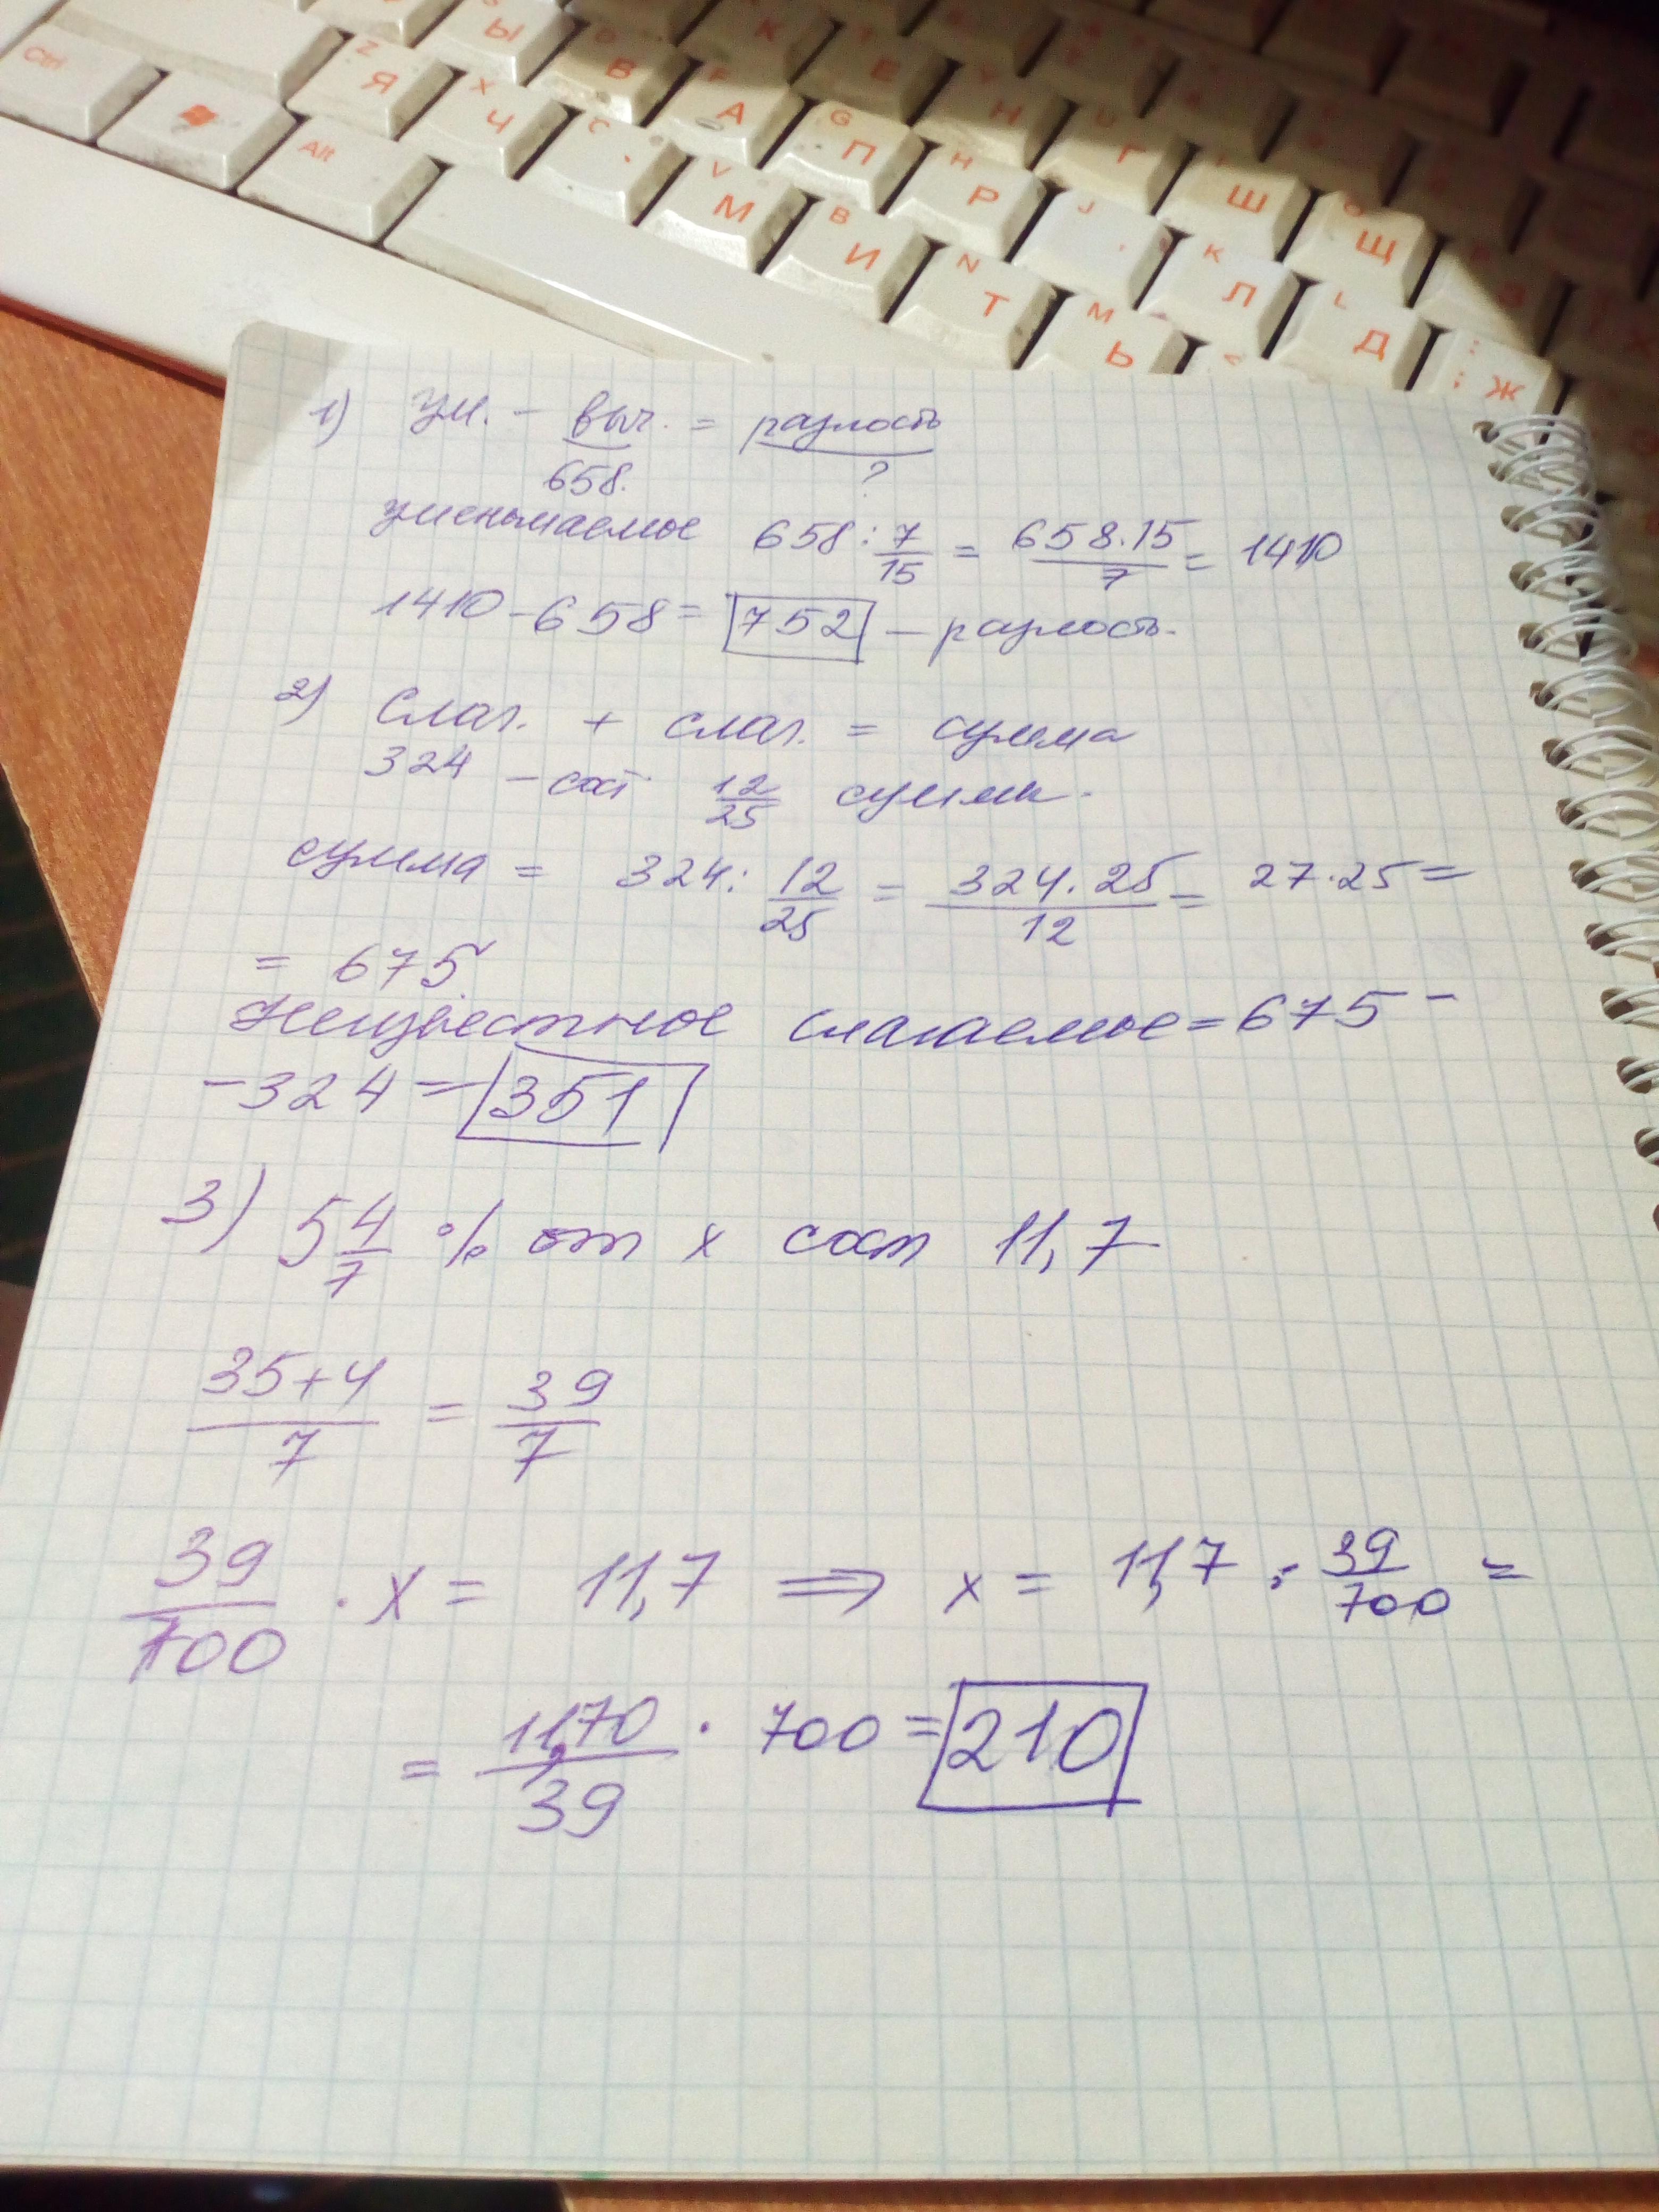 Ctrl
Alt
Z Я
X Ч
Ы
В
А
C
V М
B И
G П
H Р
N Т
M Ь
К
Е
Н
Г
Ш
Щ
J
K Л
L Д
Ж
1) ум. - выч. = разность
658. ?
уменьшаемое 658 : 7/15 = 658·15/7 = 1410
1410 - 658 = 752 – разность.
2) Слаг. + слаг. = сумма
324 – сост 12/25 суммы.
сумма = 324 : 12/25 = 324·25/12 = 27·25 =
= 675.
Неизвестное слагаемое = 675 -
- 324 = 351
3) 5 4/7 % от x сост 11,7
35+4/7 = 39/7
39/700 · x = 11,7 ⇒ x = 11,7 : 39/700 =
= 11,70/39 · 700 = 210